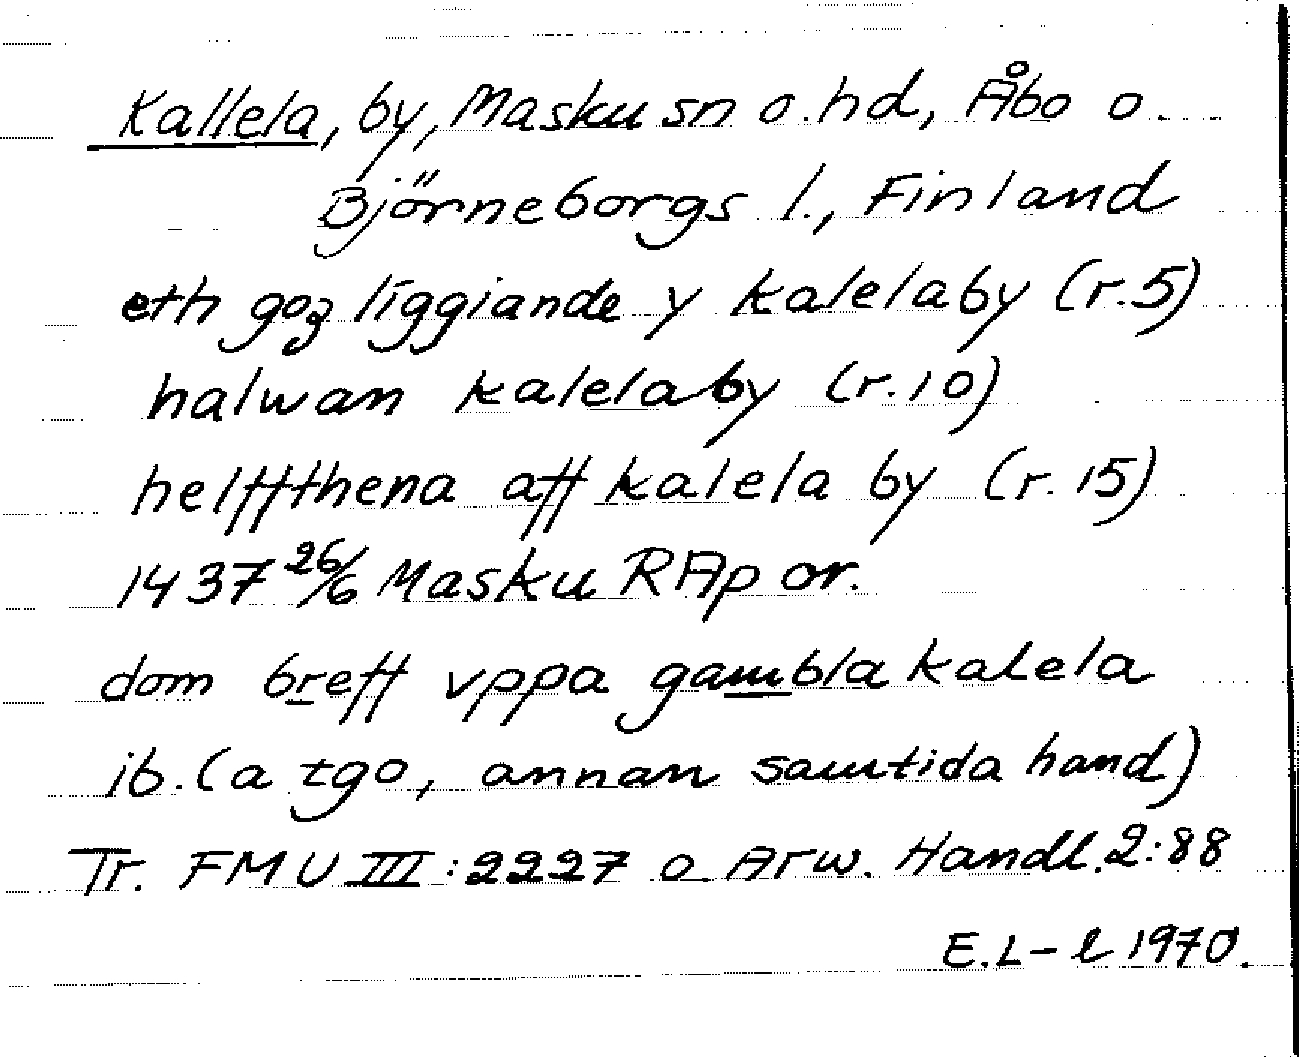 Kallela, by, Masku sn o. hd, Åbo o.
Björneborgs l., Finland
eth goz liggiande y kalelaby (r.5)
halwan kalelaby (r.10)
helffthena aff kalela by (r.15)
1437 26/6 Masku RAp or.
dom breff vppa gambla kalela
ib. (a tgo, annan samtida hand)
Tr. FMU III:2227 o Arw. Handl. 2:88
E.L-l 1970.